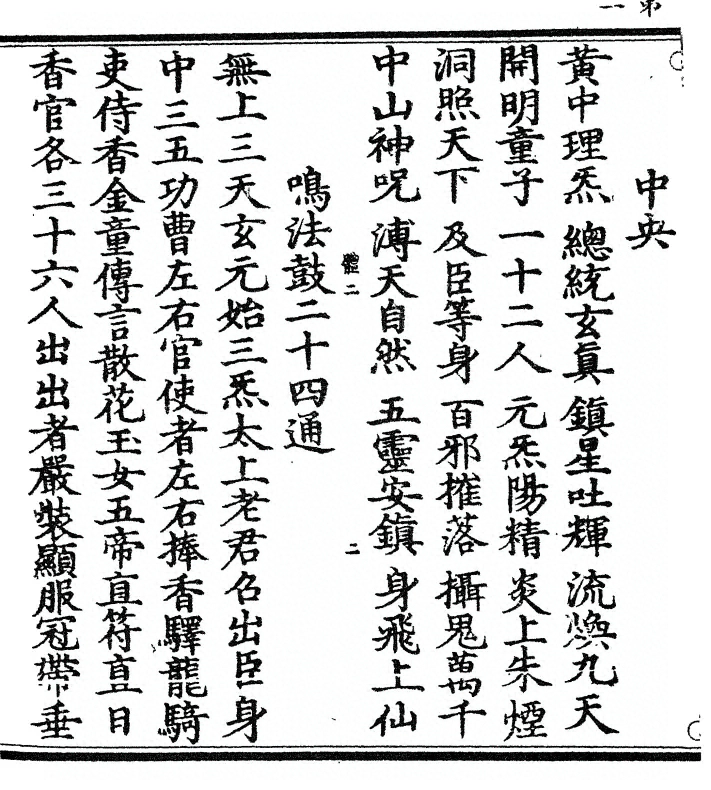 第一
中央
黃中理炁 總統玄真 鎮星吐輝 流煥九天
開明童子 一十二人 元炁陽精 炎上朱煙
洞照天下 及臣等身 百邪摧落 攝鬼萬千
中山神呪 溥天自然 五靈安鎮 身飛上仙
體二
二
鳴法鼓二十四通
無上三天玄元始三炁太上老君召出臣身
中三五功曹左右官使者左右捧香驛龍騎
吏侍香金童傳言散花玉女五帝直符直日
香官各三十六人出出者嚴裝顯服冠帶垂